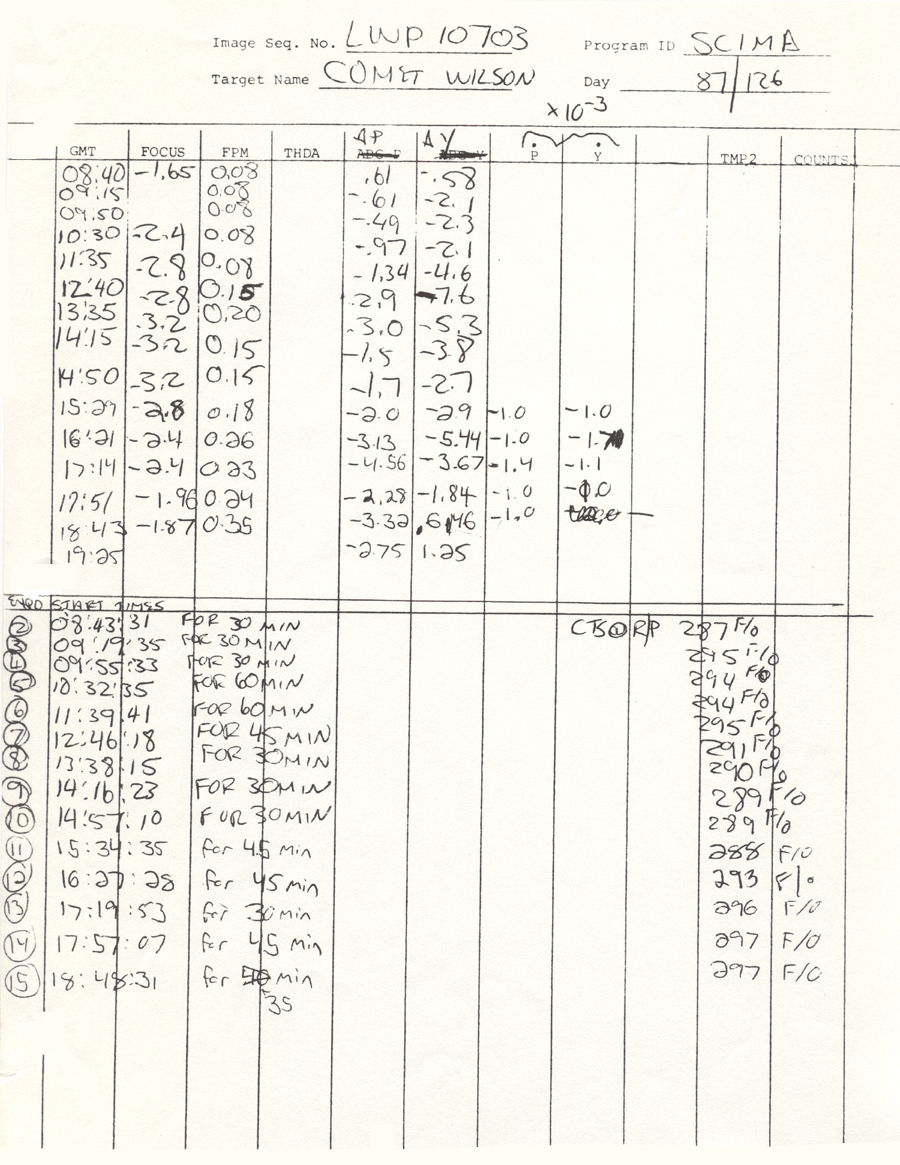 Image Seq. No. LWP 10703 Program ID SCIMA
Target Name COMET WILSON Day 87/126
×10-3
ΔP ΔY
GMT FOCUS FPM THDA P Y TMP2 COUNTS
08:40 -1.65 0.08 .61 -.58
09:15 0.08 -.61 -2.1
09:50 0.08 -.49 -2.3
10:30 -2.4 0.08 -.97 -2.1
11:35 -2.8 0.08 -1.34 -4.6
12:40 -2.8 0.15 -2.9 -7.6
13:35 -3.2 0.20 -3.0 -5.3
14:15 -3.2 0.15 -1.5 -3.8
14:50 -3.2 0.15 -1.7 -2.7
15:29 -2.8 0.18 -2.0 -2.9 -1.0 -1.0
16:21 -2.4 0.26 -3.13 -5.44 -1.0 -1.7
17:14 -2.4 0.23 -4.56 -3.67 -1.4 -1.1
17:51 -1.96 0.24 -2.28 -1.84 -1.0
18:43 -1.87 0.35 -3.32 -1.0
19:25 -2.75 1.25
START TIMES
2 08:43:31 FOR 30 MIN CTS@RP 287 F/0
3 09:19:35 FOR 30 MIN 295 F/0
09:55:33 FOR 30 MIN 294 F/0
5 10:32:35 FOR 60 MIN 294 F/0
6 11:39:41 FOR 60 MIN 295 F/0
7 12:46:18 FOR 45 MIN 291 F/0
8 13:38:15 FOR 30 MIN 290 F/0
9 14:16:23 FOR 30 MIN 289 F/0
10 14:57:10 FOR 30 MIN 289 F/0
11 15:34:35 for 45 Min 288 F/0
12 16:27:28 for 45 min 293 F/0
13 17:19:53 for 30 min 296 F/0
14 17:57:07 for 45 Min 297 F/0
15 18:48:31 for Min 297 F/0
35